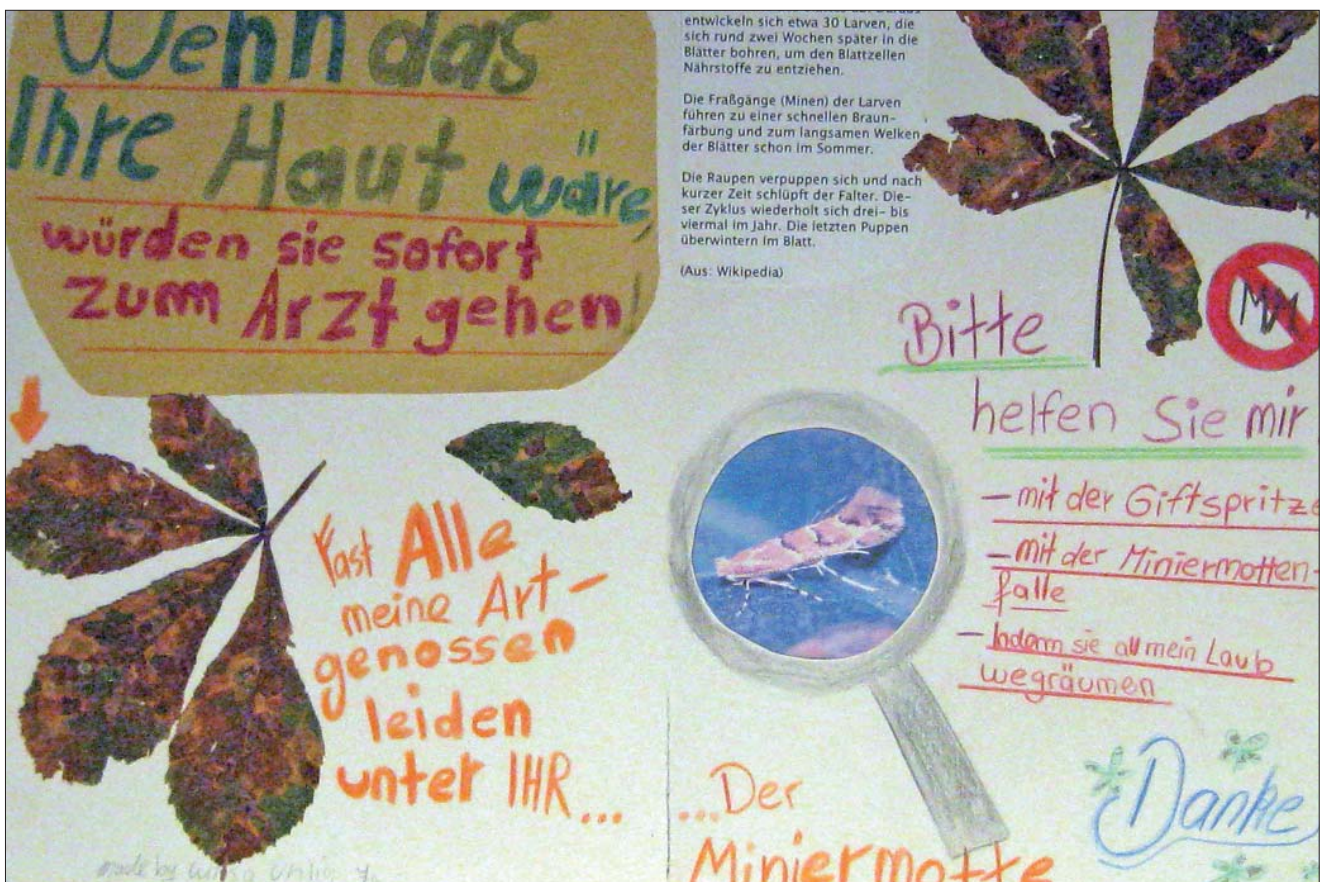 Wenn das
Ihre Haut wäre,
würden sie sofort
zum Arzt gehen!
entwickeln sich etwa 30 Larven, die
sich rund zwei Wochen später in die
Blätter bohren, um den Blattzellen
Nährstoffe zu entziehen.
Die Fraßgänge (Minen) der Larven
führen zu einer schnellen Braun-
färbung und zum langsamen Welken
der Blätter schon im Sommer.
Die Raupen verpuppen sich und nach
kurzer Zeit schlüpft der Falter. Die-
ser Zyklus wiederholt sich drei- bis
viermal im Jahr. Die letzten Puppen
überwintern im Blatt.
(Aus: Wikipedia)
Fast Alle
meine Art-
genossen
leiden
unter IHR...
...Der
Miniermotte
Bitte
helfen Sie mir
- mit der Giftspritze
- mit der Miniermotten-
falle
- Indem sie all mein Laub
wegräumen
Danke
made by